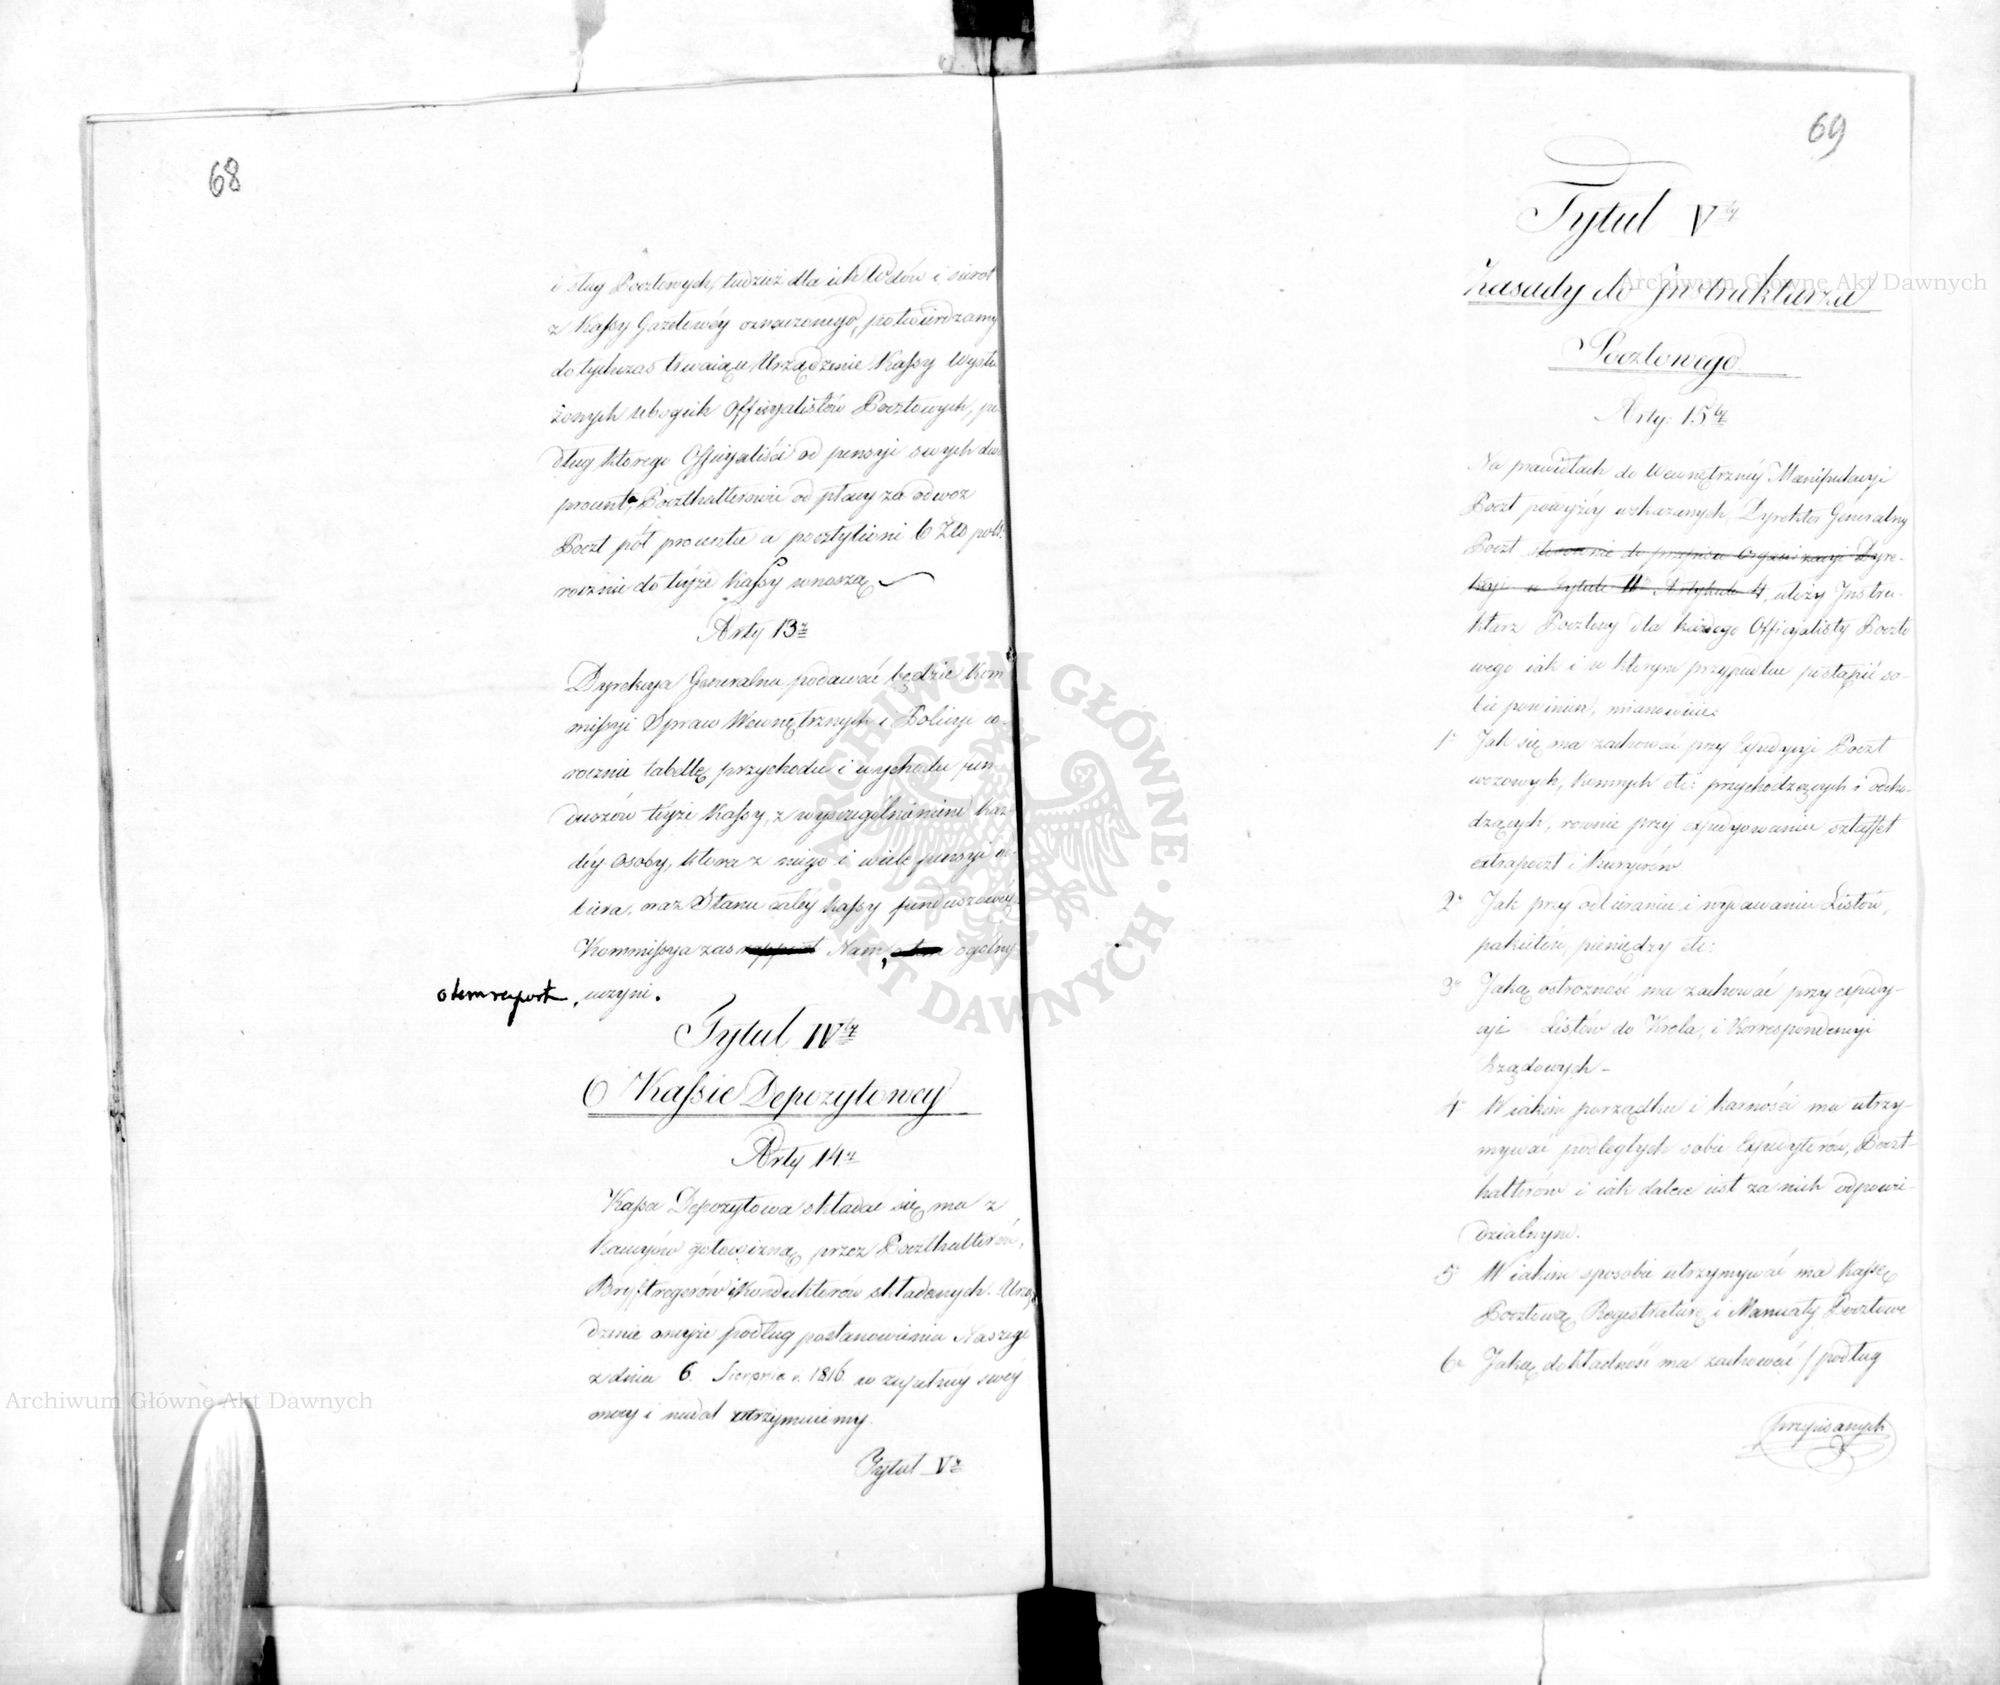 68
i sług Pocztowych, tudzież dla ich Wdów i sierot
z Kassy Gazetowéy oznaczonego, potwierdzamy
dotychczas trwaiące Urządzenie Kassy Wysłu
żonych ubogich Officyalistów Pocztowych, po
dług ktorego Officyaliści od pensyi swych dwa
procent, Poczthalterowie od płacy za odwoz
Poczt pół procentu a pocztylioni 6 Złο pols.
rocznie do teyże Kassy wnoszą
Arty 13
Dyrekcya Generalna podawać będzie Kom
missyi Spraw Wewnętrznych i Policyi co
rocznie tabellę przychodu i wychodu fun
duszów teyże Kassy, z wyszczególnieniem każ
déy osoby, ktora z niego i wiele pensyi po
biera, oraz Stanu całéy Kassy funduszowéy
Kommissya zas rapport Nam, o tem ogólny
o tem raport, uczyni.
Tytuł IV
O Kassie Depozytowey
Arty 14
Kassa Depozytowa składać się ma z
Kaucyów gotowizną przez Poczthalterów,
Bryftregerów i Konduktorów składanych. Urzą
dzenie oneyże podług postanowienia Naszego
z dnia 6. Sierpnia r. 1816 w zupełnéy swéy
mocy i nadal utrzymuiemy.
Tytuł V
69
Tytuł V
Zasady do Instruktarza
Pocztowego
Arty: 15
Na prawidłach do Wewnętrznéy Manipulacyi
Poczt powyżéy wskazanych, Dyrektor Generalny
Poczt stosownie do przepisu Organizacyi Dyre-
kcyi w Tytule II Artykule 4, ułoży Instru-
ktarz Pocztowy dla każdego Officyalisty Poczto
wego iak i w ktorym przypadku postąpić so-
bie powinien, mianowicie:
1 Jak się ma zachować przy Expedycyi Poczt
wozowych, konnych etc: przychodzących i odcho-
dzących, rownie przy expedyowaniu sztaffet
extrapoczt i kuryerów
2 Jak przy odbieraniu i wydawaniu Listów,
pakietów, pieniędzy etc:
3 Jaką ostrożność ma zachować przy expedy-
cyi Listów do Krola, i Korrespondencyi
Rządowych -
4 W iakim porządku i karności ma utrzy-
mywać podległych sobie Expedyterów, Poczt-
halterów i iak dalece iest za nich odpowie-
dzialnym.
5 W iakim sposobie utrzymywać ma Kassę
Pocztową Registraturę i Manuały Pocztowe
6 Jaką dokładność ma zachować / podług
przepisanych
Archiwum Główne Akt Dawnych
Archiwum Główne Akt Dawnych
ARCHIWUM GŁÓWNE AKT DAWNYCH